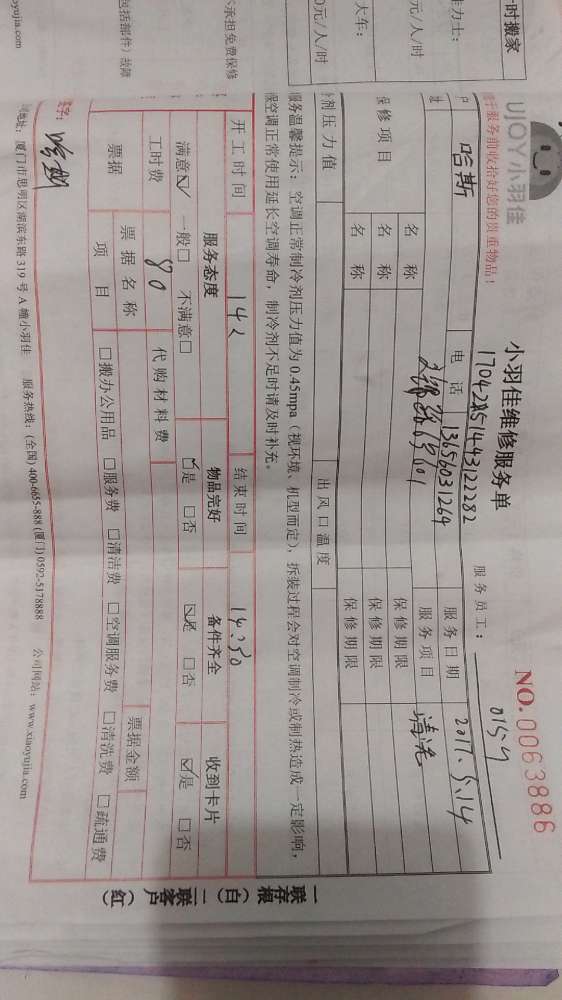 时搬家
UJOY小羽佳
小羽佳维修服务单
NO.0063886
于服务前收拾好您的贵重物品!
服务员工:
电话
13656031264
服务日期
2017.5.14
服务项目
清洗
名称
保修期限
保修项目
名称
保修期限
名称
保修期限
剂压力值
出风口温度
服务温馨提示: 空调正常制冷剂压力值为0.45mpa(视环境、机型而定), 拆装过程会对空调制冷或制热造成一定影响,
空调正常使用延长空调寿命, 制冷剂不足时请及时补充。
开工时间
结束时间
14:30
服务态度
物品完好
备件齐全
收到卡片
满意☑ 一般□ 不满意□
☑是 □否
☑是 □否
☑是 □否
工时费
80
代购材料费
票据
票据名称
票据金额
项目
□搬办公用品 □服务费 □清洁费 □空调服务费 □清洗费 □疏通费
签字:
地址: 厦门市思明区湖滨东路319号A幢小羽佳 服务热线: (全国) 400-6655-888 (厦门) 0592-5178888 公司网站: www.xiaoyujia.com
一联存根(白) 二联客户(红)
不承担免费保修
包括部件) 故障
大车:
0元/人/时
元/人/时
oyujia.com